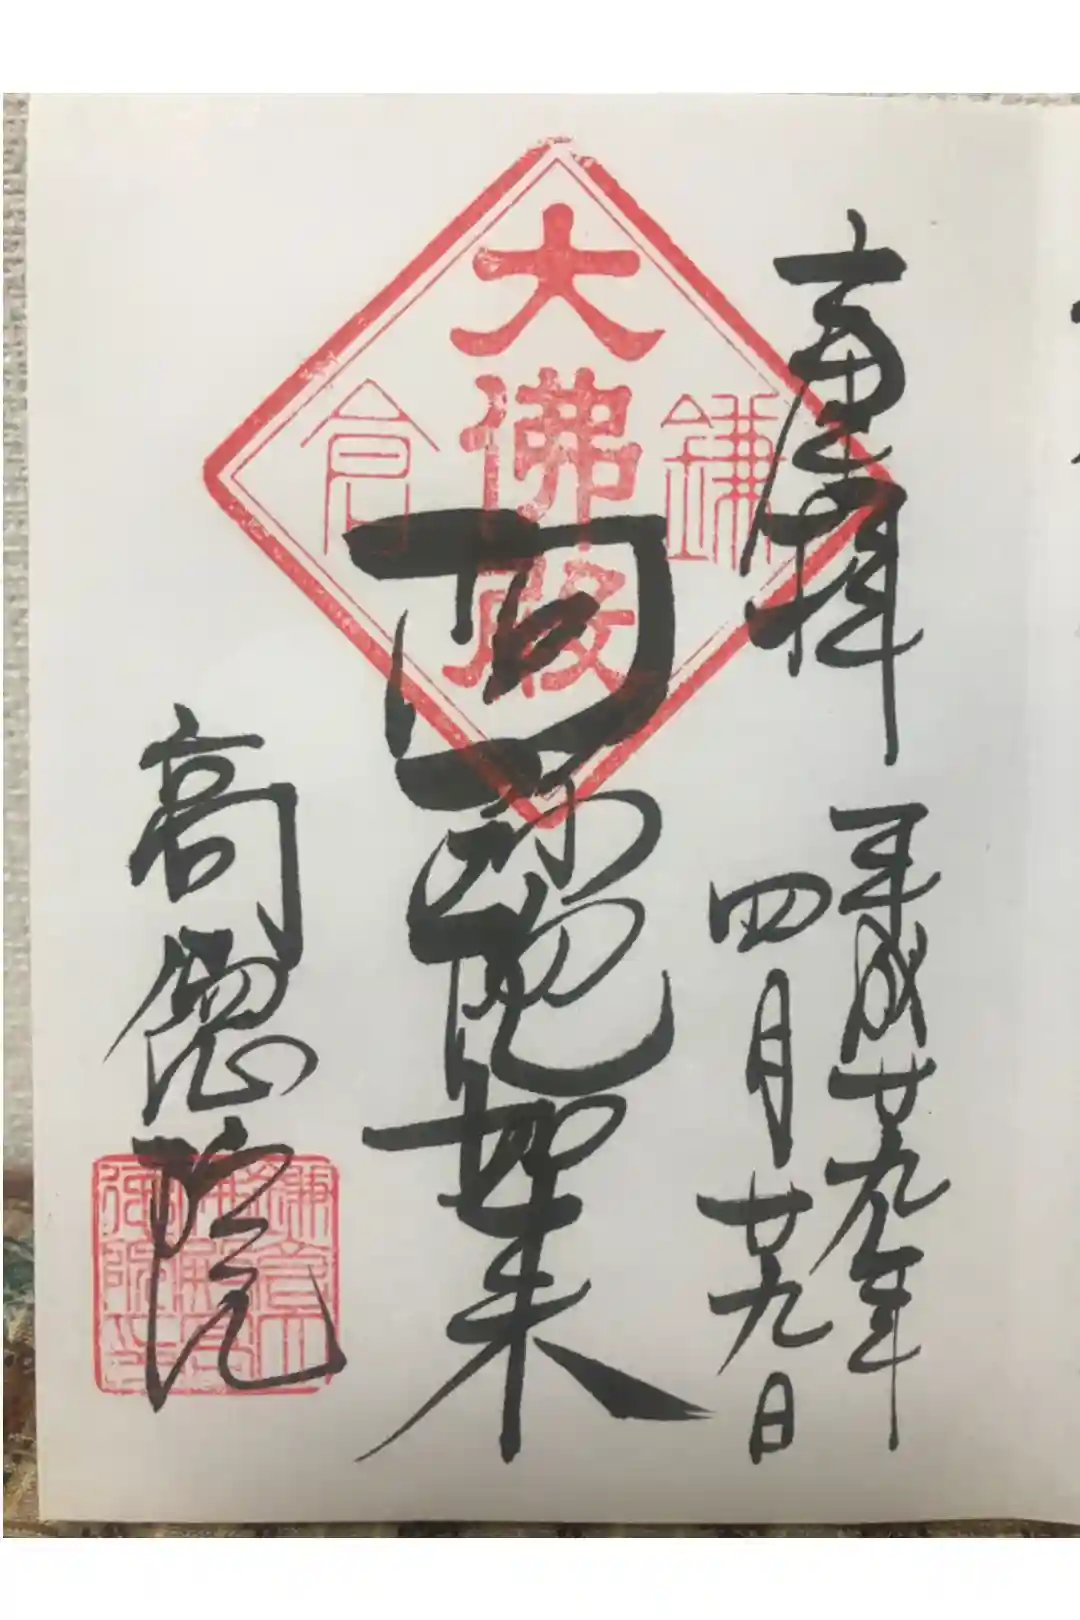 奉拝
平成廿九年
四月廿九日
鎌倉
大佛殿
阿弥陀如来
高徳院
鎌倉大
佛殿高
徳院印